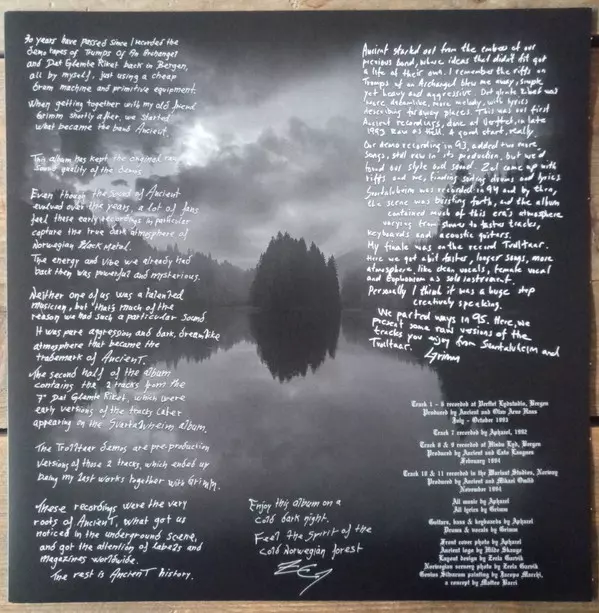 30 years have passed since I recorded the
demo tapes of Trumps Of An Archangel
and Det Glemte Riket back in Bergen,
all by myself, just using a cheap
drum machine and primitive equipment.
When getting together with my old friend
Grimm shortly after, we started
what became the band Ancient.
This album has kept the original raw
sound quality of the demos
Even though the sound of Ancient
evolved over the years, a lot of fans
feel these early recordings in particular
capture the true dark atmosphere of
Norwegian Black Metal.
The energy and vibe we already had
back then was powerful and mysterious.
Neither one of us was a talented
musician, but that's much of the
reason we had such a particular sound.
It was pure aggression and dark, dreamlike
atmosphere that became the
trademark of Ancient.
The second half of the album
contains the 2 tracks from the
7" Det Glemte Riket, which were
early versions of the tracks later
appearing on the Svartalvheim album.
The Trolltaar demos are pre-production
versions of those 2 tracks, which ended up
being my last works together with Grimm.
These recordings were the very
roots of Ancient, what got us
noticed in the underground scene,
and got the attention of labels and
magazines worldwide.
The rest is Ancient history.
Enjoy this album on a
cold dark night.
Feel the Spirit of the
cold Norwegian forest
Ancient started out from the embers of our
previous band, where ideas that didn't fit got
a life of their own. I remember the riffs on
Trumps of an Archangel blew me away, simple
yet heavy and aggressive. Det glemte Riket was
more dreamlike, more melody, with lyrics
describing faraway places. This was our first
Ancient recordings, done at in late
1993 Raw as hell. A good start, really.
Our demo recording in 93, added two more
songs, still raw in its production, but we'd
found our style and sound. Zel came up with
riffs and me, finding fitting drums and lyrics
Svartalvheim was recorded in 94 and by then,
the scene was bursting forth, and the album
contained much of this era's atmosphere
varying from slower to faster tracks,
keyboards and acoustic guitars.
My finale was on the record Trolltaar.
Here we got a bit faster, longer songs, more
atmosphere like clean vocals, female vocal
and Euphonium as solo instrument.
Personally I think it was a huge step
creatively speaking.
We parted ways in 95. Here, we
present some raw versions of the
tracks you enjoy from Svartalvheim and
Trolltaar.
Grimm
Track 1 - 6 recorded at Verftet Lydstudio, Bergen
Produced by Ancient and Olav Arne
July - October 1993
Track 7 recorded by Aphazel, 1992
Track 8 & 9 recorded at Hindu Lyd, Bergen
Produced by Ancient and Cato Langnes
February 1994
Track 10 & 11 recorded in the Warient Studios, Norway
Produced by Ancient and Mikael
November 1994
All music by Aphazel
All lyrics by Grimm
Guitars, bass & keyboards by Aphazel
Drums & vocals by Grimm
Front cover photo by Aphazel
Ancient logo by Milde Skauge
Layout design by Zeela Garvik
Norwegian scenery photo by Zeela Garvik
Genius Silvarum painting by Jacopo Marchi,
a concept by Matteo Barri